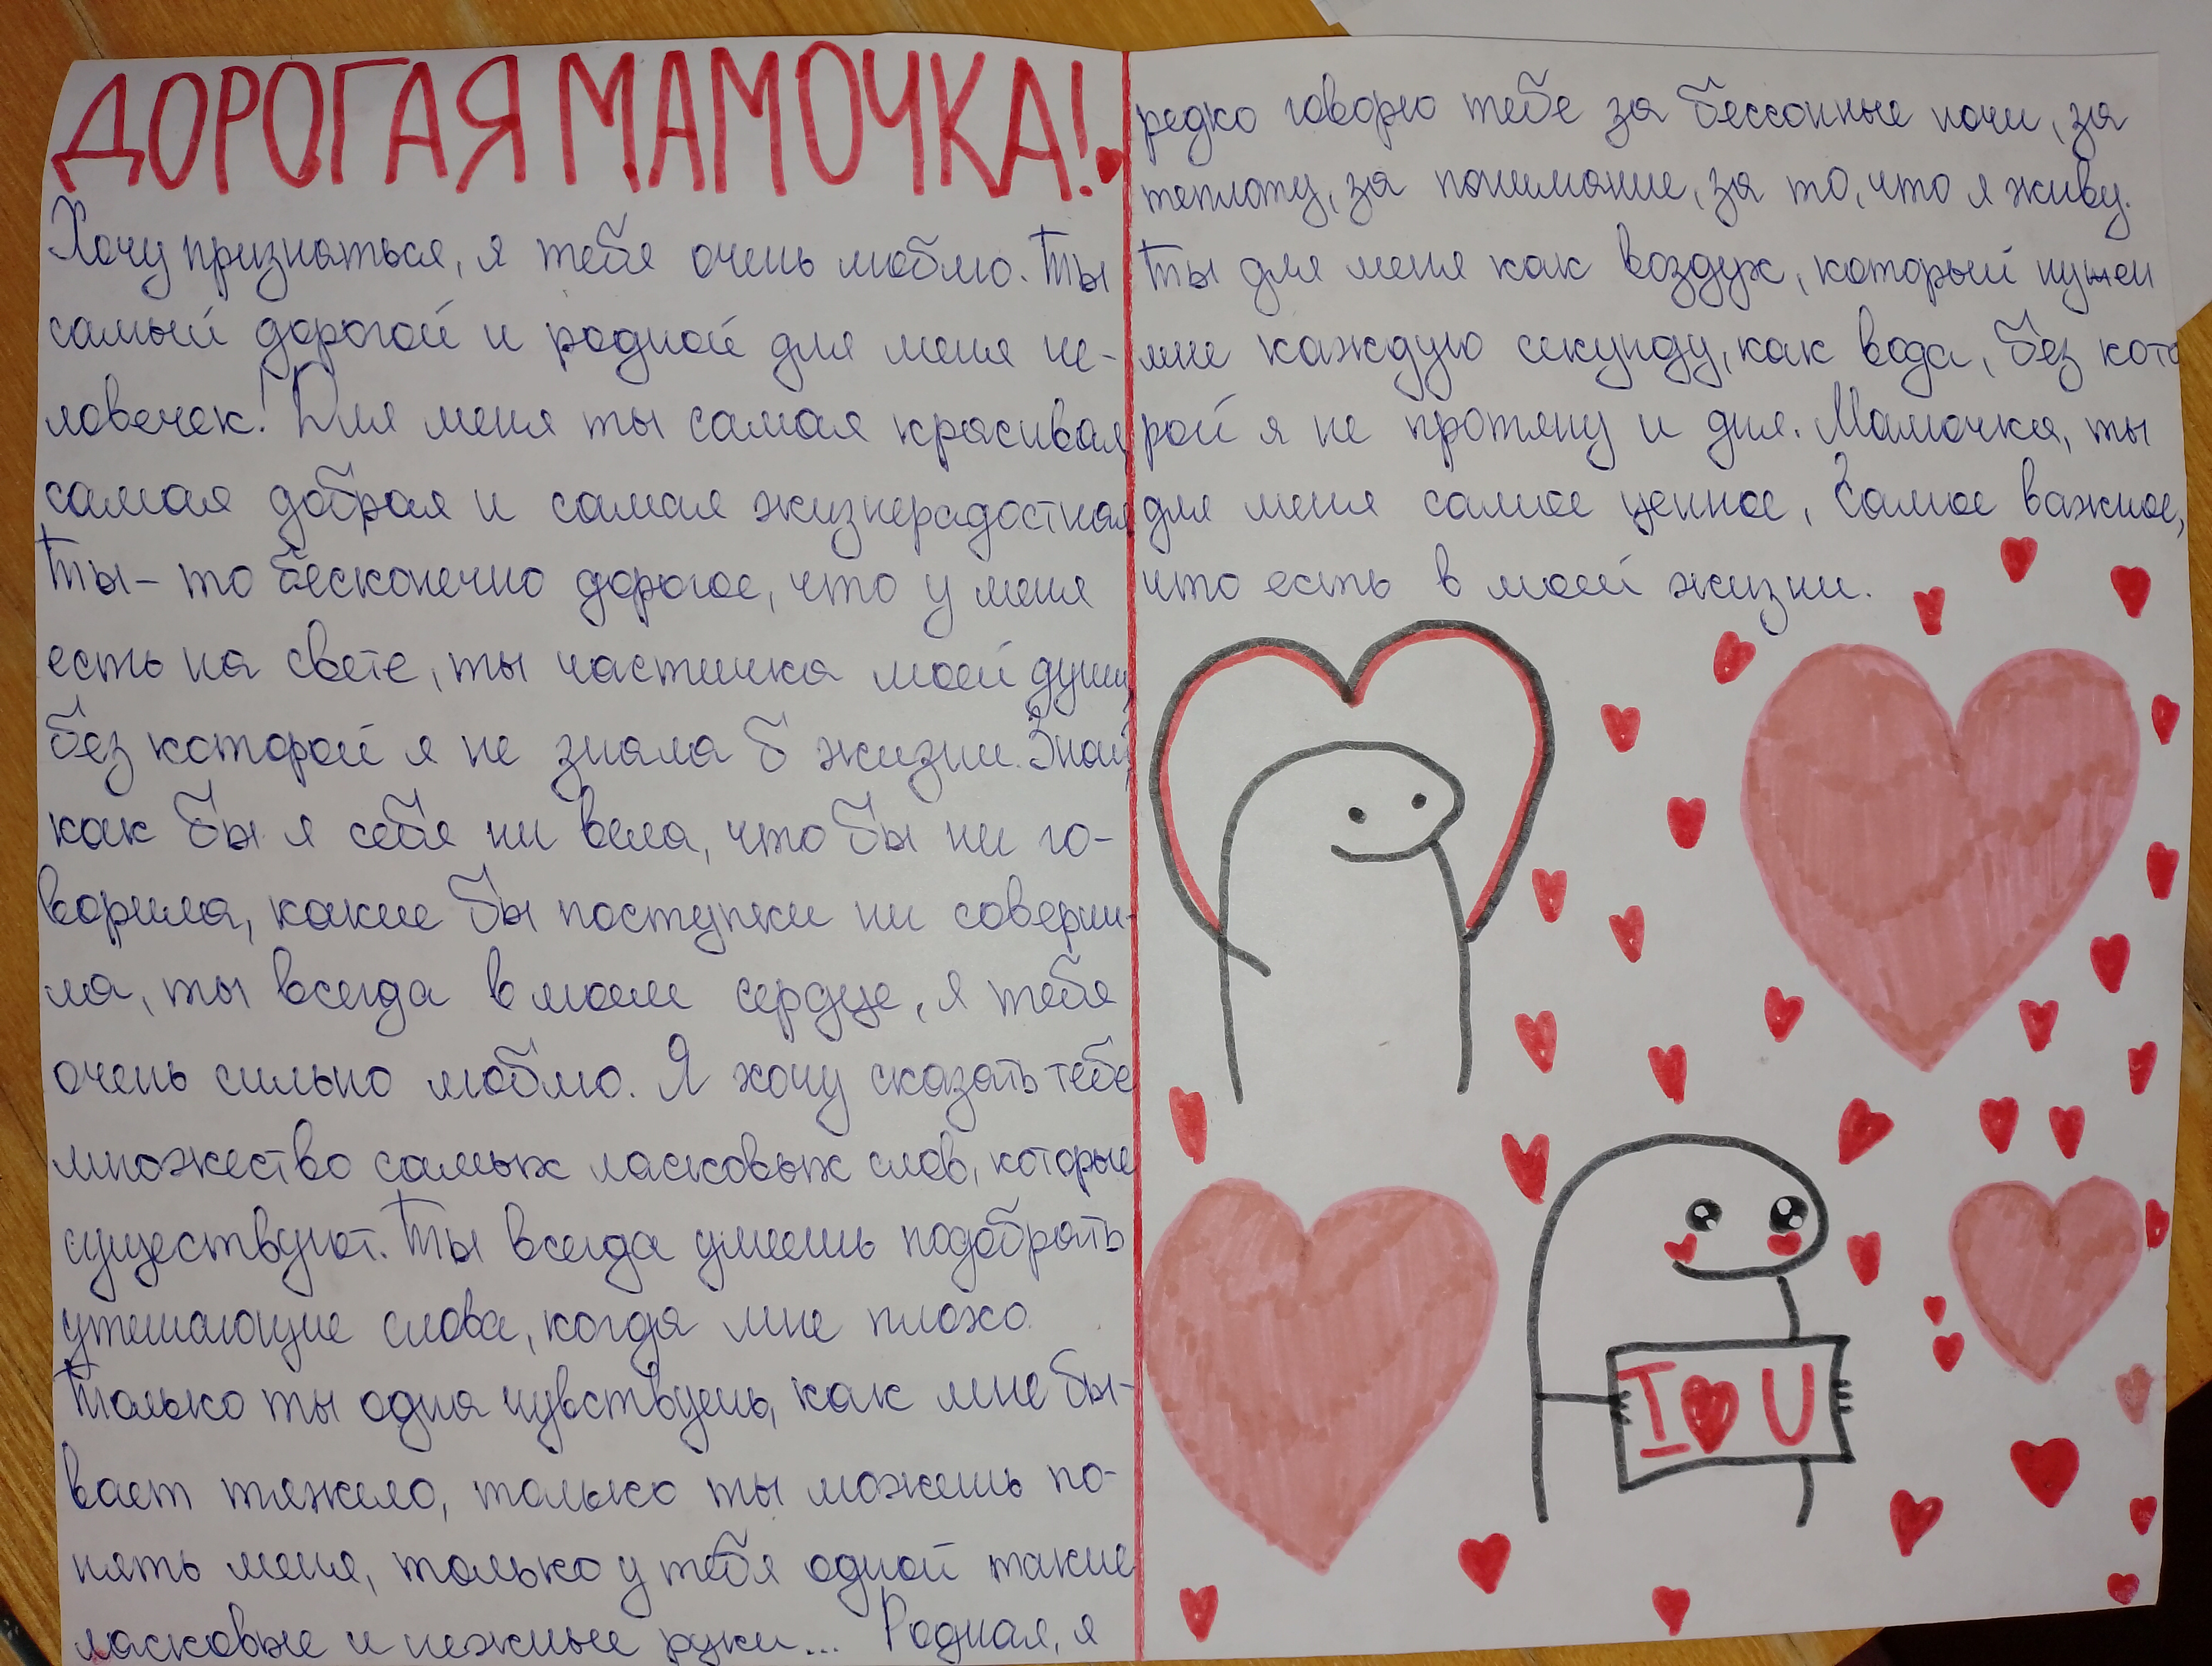 ДОРОГАЯ МАМОЧКА!
Хочу признаться, я тебя очень люблю. Ты
самый дорогой и родной для меня че-
ловечек! Для меня ты самая красивая
самая добрая и самая жизнерадостная
Ты - то бесконечно дорогое, что у меня
есть на свете, ты частичка моей души,
без которой я не знала б жизни. Знай,
как бы я себя ни вела, что бы ни го-
ворила, какие бы поступки ни соверши-
ла, ты всегда в моем сердце, я тебя
очень сильно люблю. Я хочу сказать тебе
множество самых ласковых слов, которые
существуют. Ты всегда умеешь подобрать
утешающие слова, когда мне плохо.
Только ты одна чувствуешь, как мне бы-
вает тяжело, только ты можешь по-
нять меня, только у тебя одной такие
ласковые и нежные руки... Родная, я
редко говорю тебе за бессонные ночи, за
теплоту, за понимание, за то, что я живу.
Ты для меня как воздух, который нужен
мне каждую секунду, как вода, без кото
рой я не протяну и дня. Мамочка, ты
для меня самое ценное, самое важное,
что есть в моей жизни.
I ♥ U